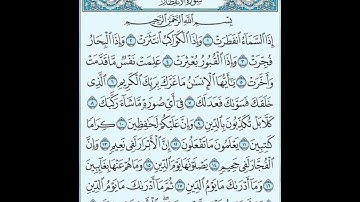 سورة الانفطار
بسم الله الرحمن الرحيم
إِذَا السَّمَاءُ انفَطَرَتْ ١ وَإِذَا الْكَوَاكِبُ انتَثَرَتْ ٢ وَإِذَا الْبِحَارُ
فُجِّرَتْ ٣ وَإِذَا الْقُبُورُ بُعْثِرَتْ ٤ عَلِمَتْ نَفْسٌ مَّا قَدَّمَتْ
وَأَخَّرَتْ ٥ يَا أَيُّهَا الْإِنسَانُ مَا غَرَّكَ بِرَبِّكَ الْكَرِيمِ ٦ الَّذِي
خَلَقَكَ فَسَوَّاكَ فَعَدَلَكَ ٧ فِي أَيِّ صُورَةٍ مَّا شَاءَ رَكَّبَكَ ٨
كَلَّا بَلْ تُكَذِّبُونَ بِالدِّينِ ٩ وَإِنَّ عَلَيْكُمْ لَحَافِظِينَ ١٠ كِرَامًا
كَاتِبِينَ ١١ يَعْلَمُونَ مَا تَفْعَلُونَ ١٢ إِنَّ الْأَبْرَارَ لَفِي نَعِيمٍ ١٣ وَإِنَّ
الْفُجَّارَ لَفِي جَحِيمٍ ١٤ يَصْلَوْنَهَا يَوْمَ الدِّينِ ١٥ وَمَا هُمْ عَنْهَا بِغَائِبِينَ
١٦ وَمَا أَدْرَاكَ مَا يَوْمُ الدِّينِ ١٧ ثُمَّ مَا أَدْرَاكَ مَا يَوْمُ الدِّينِ